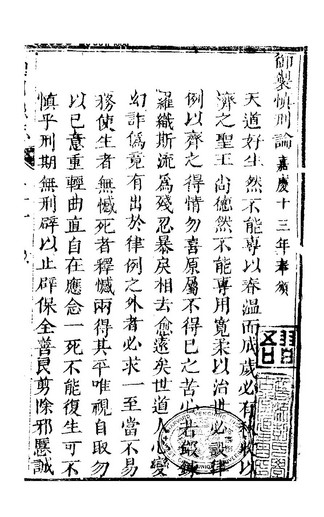 御製慎刑論 嘉慶十三年奉頒
天道好生然不能專以春溫而成歲必有秋收以
濟之聖王尚德然不能專用寬柔以治世必設律
例以齊之得情勿喜原屬不得已之苦心若鍛鍊
羅織斯流為殘忍暴戾相去愈遠矣世道人心變
幻詐偽竟有出於律例之外者必求一至當不易
務使生者無憾死者釋憾兩得其平唯視自取勿
以已意重輕曲直自在應念一死不能復生可不
慎乎刑期無刑辟以止辟保全善良剪除邪慝誠